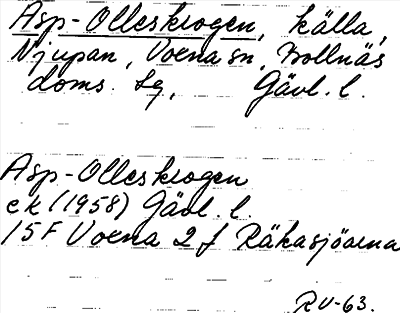 Asp-Olleskrogen, källa,
Njupan, Voxna sn, Bollnäs
doms. sg, Gävl. l.
Asp-Olleskrogen
ek (1958) Gävl. l.
15F Voxna 2 f Räkasjöarna
RU-63.